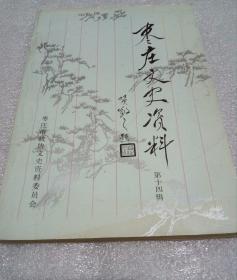 枣庄文史资料
第十四辑
枣庄市政协文史资料委员会